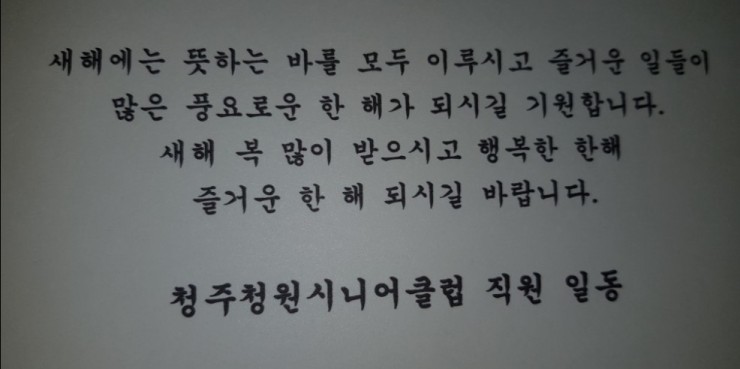 새해에는 뜻하는 바를 모두 이루시고 즐거운 일들이
많은 풍요로운 한 해가 되시길 기원합니다.
새해 복 많이 받으시고 행복한 한해
즐거운 한 해 되시길 바랍니다.
청주청원시니어클럽 직원 일동